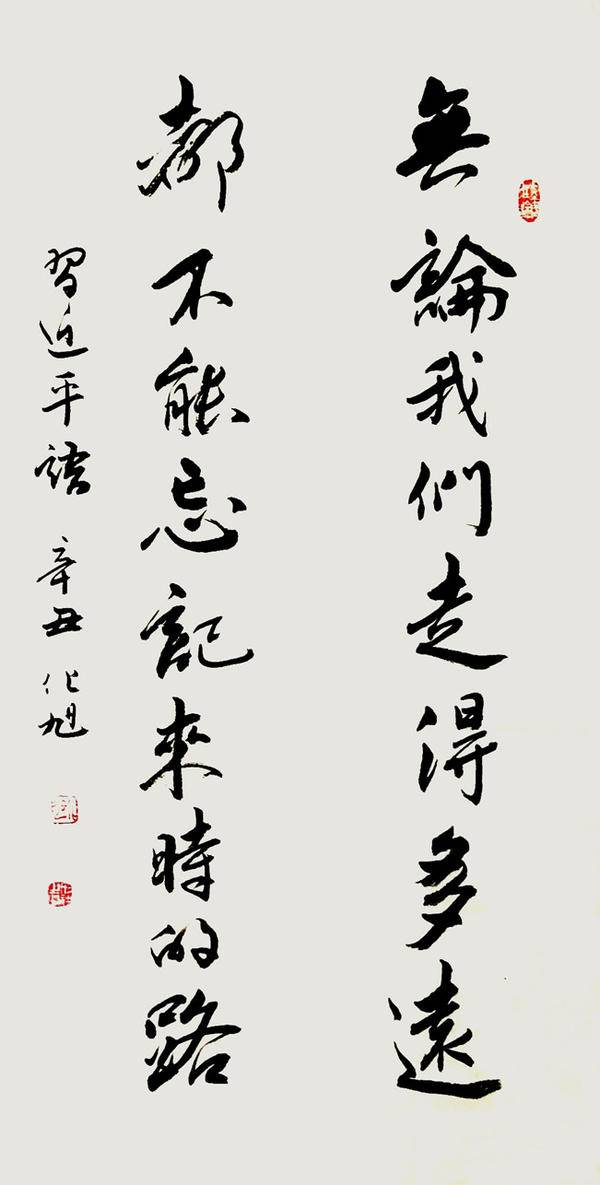 無論我們走得多遠
都不能忘記來時的路
習近平語 辛丑 化旭